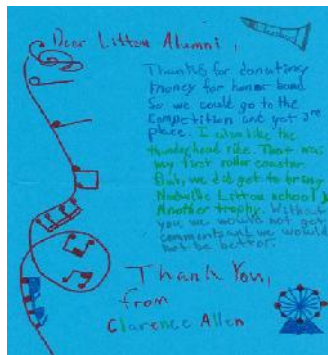 Dear Litton Alumni,
Thanks for donating
money for honor band
So we could go to the
Competition and get 2nd
place. I also like the
thunderhead ride. That was
my first roller coaster
But, we did get to bring
Nashville Litton school
Another trophy. Without
you we would not get
comments and we would
not be better.
Thank You,
from
Clarence Allen